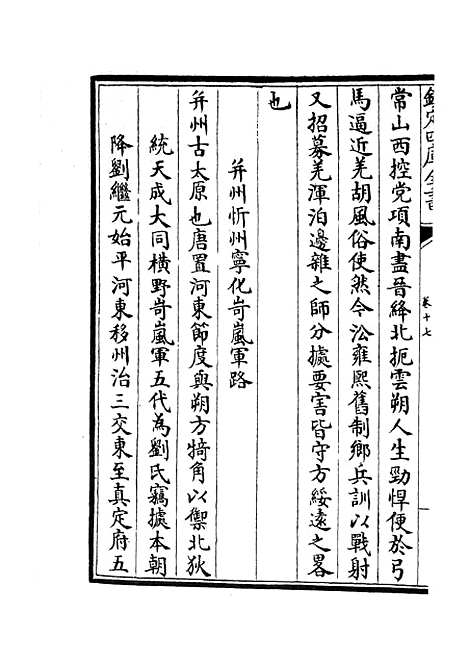 欽定四庫全書
卷十七
常山西控党項南盡晉絳北扼雲朔人生勁悍便於弓
馬逼近羌胡風俗使然今㳂雍熙舊制鄉兵訓以戰射
又招募羌渾泊邊雜之師分據要害皆守方綏遠之畧
也
并州忻州寧化岢嵐軍路
并州古太原也唐置河東節度與朔方犄角以禦北狄
統天成大同橫野岢嵐軍五代為劉氏竊據本朝
降劉繼元始平河東移州治三交東至真定府五